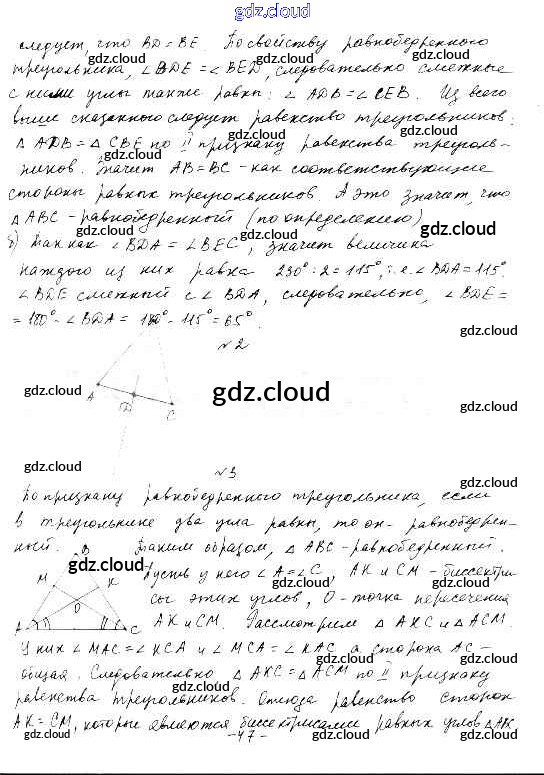 gdz.cloud
следует, что BD = BE. По свойству равнобедренного
треугольника, ∠BDE = ∠BED, следовательно смежные
с ними углы также равны: ∠ADB = ∠CEB. Из всего
выше сказанного следует равенство треугольников:
△ADB = △CBE по II признаку равенства треуголь-
ников. Значит AB = BC - как соответствующие
стороны равных треугольников. А это значит, что
△ABC - равнобедренный (по определению)
б) Так как ∠BDA = ∠BEC, значит величина
каждого из них равна 230° : 2 = 115°, т.е. ∠BDA = 115°.
∠BDE смежный с ∠BDA, следовательно, ∠BDE =
= 180° - ∠BDA = 180° - 115° = 65°.
№2
A D C
№3
По признаку равнобедренного треугольника, если
в треугольнике два угла равны, то он - равнобедрен-
ный. Таким образом, △ABC - равнобедренный.
B M K O A C
Пусть у него ∠A = ∠C, AK и CM - биссектри-
сы этих углов, O - точка пересечения
AK и CM. Рассмотрим △AKC и △ACM.
У них ∠MAC = ∠KCA и ∠MCA = ∠KAC, а сторона AC -
общая. Следовательно △AKC = △ACM по II признаку
равенства треугольников. Отсюда равенство сторон
AK = CM, которые являются биссектрисами равных углов △ABC
-47-